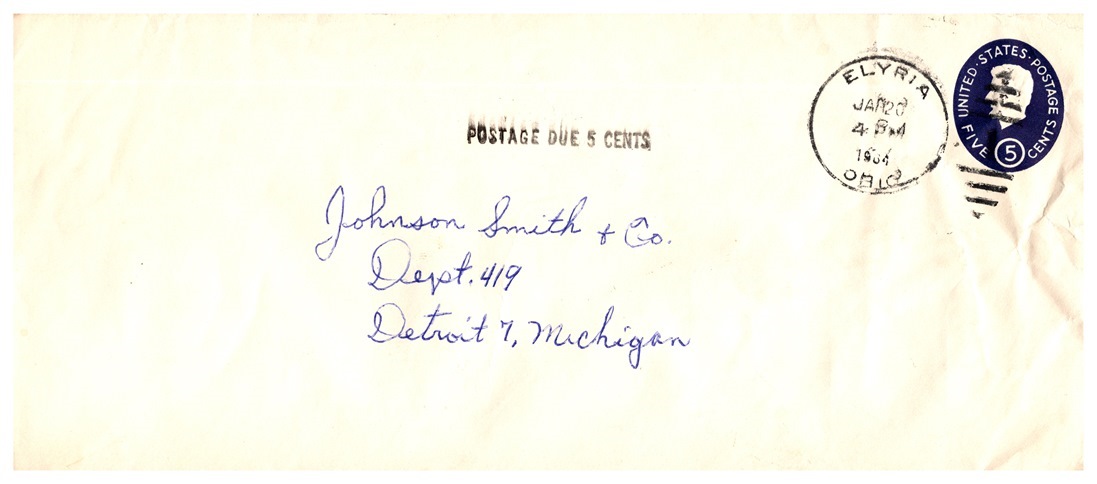 UNITED · STATES · POSTAGE
FIVE 5 CENTS
ELYRIA
JAN 20
4 PM
1964
OHIO
POSTAGE DUE 5 CENTS
Johnson Smith + Co.
Dept. 419
Detroit 7, Michigan